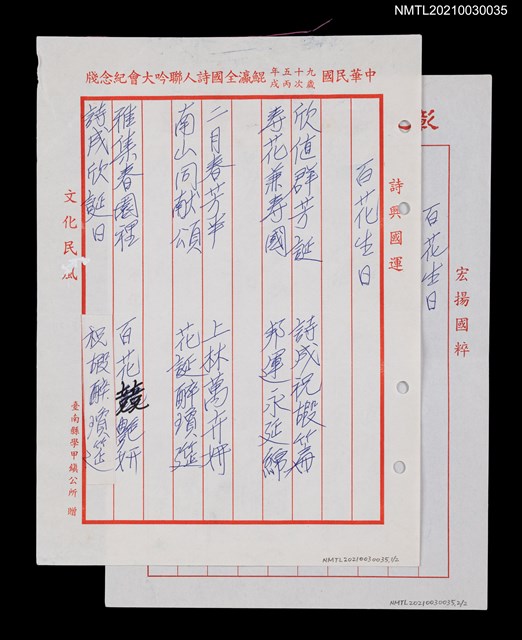 NMTL20210030035
中華民國九十五年歲次丙戌鯤瀛全國詩人聯吟大會紀念牋
詩興國運
百花生日
欣值群芳誕 詩成祝嘏篇
壽花兼壽國 邦運永延綿
二月春芳半 上林萬卉妍
南山同献頌 花誕醉瓊筵
雅集春園裡 百花競艷妍
詩成欣誕日 祝嘏醉瓊筵
文化民風
臺南縣學甲鎮公所 贈
NMTL20210030035.1/2
彰
宏揚國粹
百花生日
NMTL20210030035.2/2